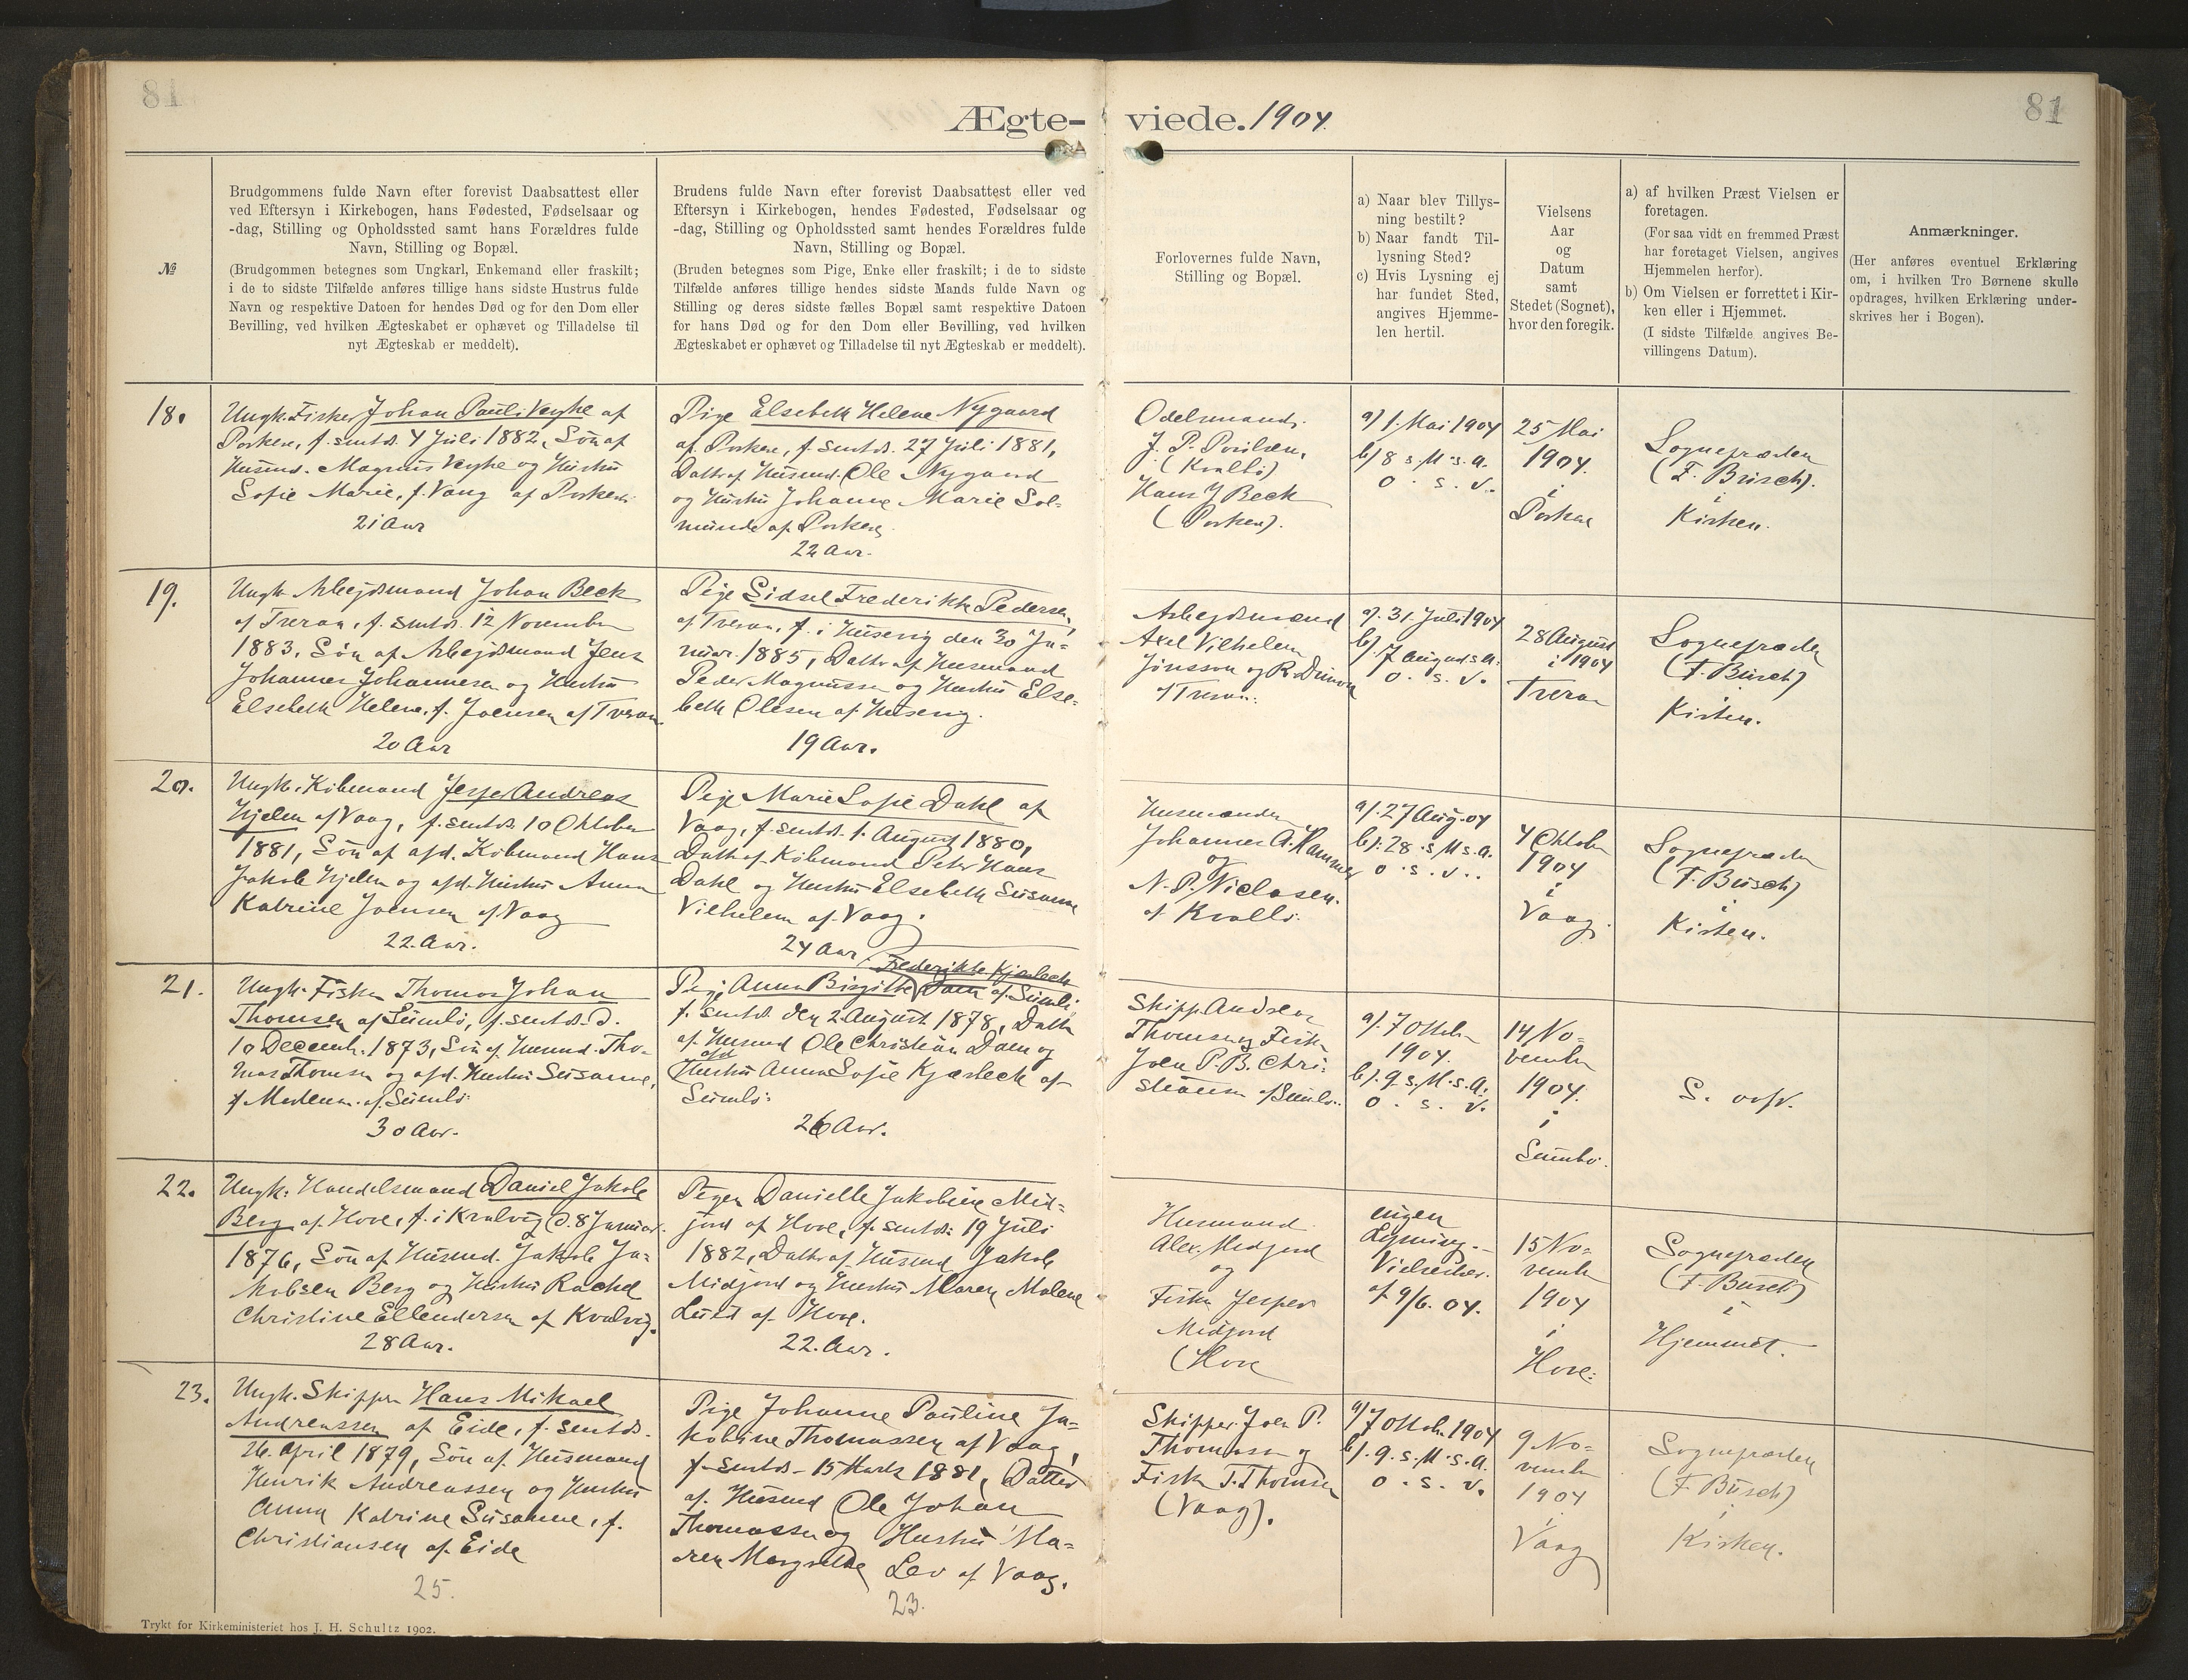 81
81
Ægte- viede. 1904
№
Brudgommens fulde Navn efter forevist Daabsattest eller
ved Eftersyn i Kirkebogen, hans Fødested, Fødselsaar og
-dag, Stilling og Opholdssted samt hans Forældres fulde
Navn, Stilling og Bopæl.
(Brudgommen betegnes som Ungkarl, Enkemand eller fraskilt;
i de to sidste Tilfælde anføres tillige hans sidste Hustrus fulde
Navn og respektive Datoen for hendes Død og for den Dom eller
Bevilling, ved hvilken Ægteskabet er ophævet og Tilladelse til
nyt Ægteskab er meddelt).
Brudens fulde Navn efter forevist Daabsattest eller ved
Eftersyn i Kirkebogen, hendes Fødested, Fødselsaar og
-dag, Stilling og Opholdssted samt hendes Forældres fulde
Navn, Stilling og Bopæl.
(Bruden betegnes som Pige, Enke eller fraskilt; i de to sidste
Tilfælde anføres tillige hendes sidste Mands fulde Navn og
Stilling og deres sidste fælles Bopæl samt respektive Datoen
for hans Død og for den Dom eller Bevilling, ved hvilken
Ægteskabet er ophævet og Tilladelse til nyt Ægteskab er meddelt).
Forlovernes fulde Navn,
Stilling og Bopæl.
a) Naar blev Tillys-
ning bestilt?
b) Naar fandt Til-
lysning Sted?
c) Hvis Lysning ej
har fundet Sted,
angives Hjemme-
len hertil.
Vielsens
Aar
og
Datum
samt
Stedet (Sognet),
hvor den foregik.
a) af hvilken Præst Vielsen er
foretagen.
(For saa vidt en fremmed Præst
har foretaget Vielsen, angives
Hjemmelen herfor).
b) Om Vielsen er forrettet i Kir-
ken eller i Hjemmet.
(I sidste Tilfælde angives Be-
villingens Datum).
Anmærkninger.
(Her anføres eventuel Erklæring
om, i hvilken Tro Børnene skulle
opdrages, hvilken Erklæring under-
skrives her i Bogen).
18.
Ungk. Fisker Johan Pauli Veyhe af
Porkere, f. smtds. 4 Juli 1882, Søn af
Husmd. Magnus Veyhe og Hustru
Sofie Marie, f. Vang af Porkere
21 Aar
Pige Elsebeth Helene Nygaard
af Porkere, f. smtds. 27 Juli 1881,
Datter af Husmd. Ole Nygaard
og Hustru Johanne Marie Sol-
munde af Porkere
22 Aar.
Odelsmand.
J. P. Poulsen,
(Kvalbø)
Hans J Beck
(Porkere).
a) 1. Mai 1904
b) 8 s. M. s. A.
o. s. v.
25 Mai
1904.
i
Porkere
Sognepræsten
(F. Busch).
i
Kirken.
19.
Ungk. Arbejdsmand Johan Beck
af Tveraa, f. smtds. 12 November
1883, Søn af Arbejdsmand Jens
Johannes Johannesen og Hustru
Elsebeth Helene, f. Joensen af Tveraa
20 Aar
Pige Sidsel Frederikke Pedersen,
af Tveraa, f. i Husevig den 30 Ja-
nuar 1885, Datter af Husmand
Peder Magnussen og Hustru Else-
beth Olesen af Husevig.
19 Aar.
Arbejdsmænd
Axel Vilhelm
Jönsson og R. Dimon
af Tveraa.
a). 31. Juli 1904
b). 7 August s. A.
o. s. v.
28 August
i 1904
Tveraa
Sognepræsten
(F. Busch)
i
Kirken.
20.
Ungk. Købmand Jesper Andreas
Kjølen af Vaag, f. smtds. 10 Oktober
1881, Søn af afd. Købmand Hans
Jakob Kjølen og afd. Hustru Anna
Katrine Joensen af Vaag
22 Aar.
Pige Marie Sofie Dahl af
Vaag, f. smtds. 1. August 1880,
Datter af Købmand Peter Hans
Dahl og Hustru Elsebeth Susanne
Vilhelm af Vaag.
24 Aar
Husmændene
Johannes A. Hammer
og
N. P. Niclasen.
af Kvalbø.
a). 27 Aug. 04
b). 28. s. M. s. A.
o. s. v.
4 Oktober
1904
i
Vaag.
Sognepræsten
(F. Busch)
i
Kirken.
21.
Ungk. Fisker Thomas Johan
Thomsen af Sumbø, f. smtds. d.
10 Decemb. 1873, Søn af Husmd. Tho-
mas Thomsen og afd. Hustru Susanne,
f Mortensen. af Sumbø.
30 Aar.
Frederikke Kjærbech
Pige Anna Birgitte Dam af Sumbø,
f. smtds. den 2. August 1878, Datter
af Husmd Ole Christian Dam og
afd
Hustru Anna Sofie Kjærbeck af
Sumbø.
26 Aar.
Skipp. Andreas
Thomsen og Fisker
Joen P. B. Chri-
stiansen af Sumbø.
a). 7 Oktob.
1904.
b). 9 s. M. s. A.
o. s. v.
14 No-
vember
1904.
i
Sumbø.
S. ovfr.
22.
Ungk. Handelsmand Daniel Jakob
Berg af Hove, f. i Kvalvig d. 8 Januar.
1876, Søn af Husmd. Jakob Ja-
kobsen Berg og Hustru Rachel
Christine Ellendersen af Kvalvig.
28 Aar.
Pigen Danielle Jakobine Mid-
jord af Hove, f. smtds. 19 Juli
1882, Datter af Husmd Jakob
Midjord og Hustru Maren Malene
Lutt af Hove.
22. Aar.
Husmand
Alex. Midjord
og
Fisker Jesper
Midjord
(Hove
ingen
Lysning.
Vielsesbr.
af 9/6. 04.
15 No-
vember
1904
i
Hove.
Sognepræsten
(F. Busch)
i
Hjemmet.
23.
Ungk. Skipper Hans Mikael
Andreassen af Eide, f. smtds.
26. April 1879, Søn af Husmand
Henrik Andreassen og Hustru
Anna Katrine Susanne, f.
Christiansen af Eide
25.
Pige Johanne Pauline Ja-
kobine Thomassen af Vaag,
f. smtds. 15 Marts 1881, Datter
af Husmd Ole Johan
Thomassen og Hustru Ma-
ren Margrethe Lev af Vaag.
23.
Skipper Joen P.
Thomassen og
Fisker T. Thomsen
(Vaag).
a) 7 Oktob. 1904
b). 9. s. M. s. A.
o. s. v.
9 No-
vember
1904
i
Vaag
Sognepræsten
(F. Busch)
i
Kirken.
Trykt for Kirkeministeriet hos J. H. Schultz 1902.